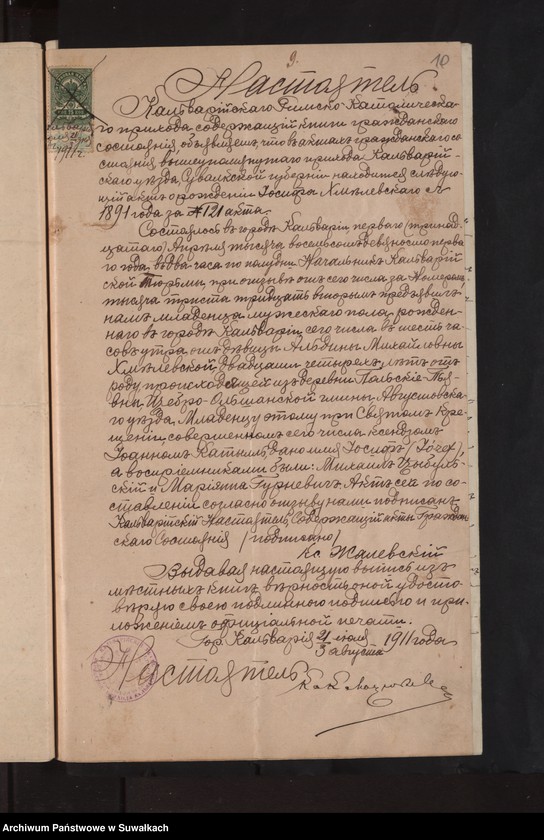 9.
10
Настоятель
Кальварійскаго Римско-Католическа-
го прихода содержащій книги гражданскаго
состоянія, объявляетъ, что въ актахъ гражданскаго со
стоянія вышеупомянутаго прихода Кальварій-
скаго уѣзда, Сувалкской губерніи находится слѣдую-
щій актъ о рожденіи Іосифа Хмѣлевскаго
1891 года за № 121 акта.
Состоялось въ городѣ Кальваріи перваго (тринад-
цатаго) Апрѣля тысяча восемьсотъ девяносто перва
го года, въ два часа по полудни. Начальникъ Кальварій
ской Тюрьмы, при отзывѣ отъ сего числа за Номеромъ
тысяча триста тридцать вторымъ предъявилъ
намъ младенца мужескаго пола, рожден-
наго въ городѣ Кальваріи, сего числа въ шесть ча-
совъ утра отъ дѣвицы Альбины Михайловны
Хмѣлевской, двадцати четырехъ лѣтъ отъ
роду происходящей изъ деревни Польскіе-
вны, гмины Августовска
го уѣзда. Младенцу этому при Святомъ Кре-
щеніи, совершенномъ сего числа ксендзомъ
Іоанномъ дано имя Іосифъ /Józef/,
а воспріемниками были: Михаилъ Цыбуль-
скій и Маріанна Гурневичъ. Актъ сей по со-
ставленіи согласно отзыву нами подписанъ.
Кальварійскій Настоятель, Содержащій акты Граждан
скаго Состоянія /подписано/
Кс Жалевскій
Выдавая настоящую выпись изъ
мѣстныхъ книгъ, вѣрность оной удосто-
вѣряю своею подлинною подписью и при-
ложеніемъ официальной печати.
Гор. Кальварія 21 іюля / 3 августа 1911 года
Настоятель
Archiwum Państwowe w Suwałkach